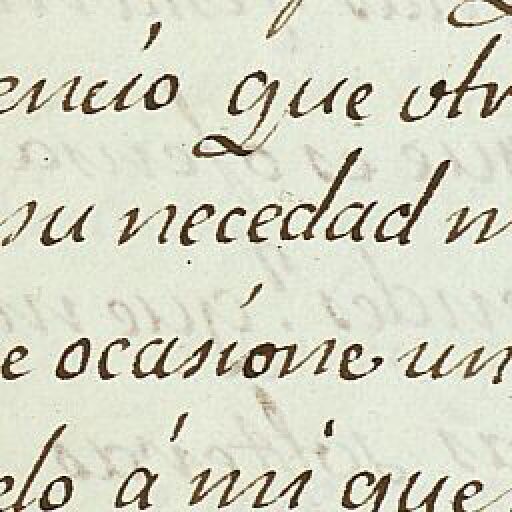 encio que otr
su necedad m
e ocasione un
elo á mi que